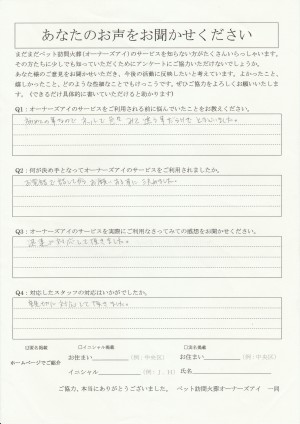 あなたのお声をお聞かせください
まだまだペット訪問火葬(オーナーズアイ)のサービスを知らない方がたくさんいらっしゃいます。
その方たちに少しでも知っていただくためにアンケートにご協力いただけないでしょうか。
あなた様のご意見をお聞かせいただき、今後の活動に反映したいと考えています。よかったこと、
嬉しかったこと、どのような些細なことでもけっこうです。ぜひご協力をよろしくお願いいたしま
す。(できるだけ具体的に書いていただけると助かります)
Q1:オーナーズアイのサービスをご利用される前に悩んでいたことをお教えください。
初めての事なので
Q2:何が決め手となってオーナーズアイのサービスをご利用されましたか。
お電話で話してから お願いする事に 決めました。
Q3:オーナーズアイのサービスを実際にご利用なさってみての感想をお聞かせください。
迅速に対応して頂きました。
Q4:対応したスタッフの対応はいかがでしたか。
親切に対応して頂きました。
□匿名掲載 □イニシャル掲載 □氏名掲載
ホームページでご紹介 お住まい (例:中央区) お住まい (例:中央区)
イニシャル (例:J.H) 氏名
ご協力、本当にありがとうございました。 ペット訪問火葬オーナーズアイ 一同